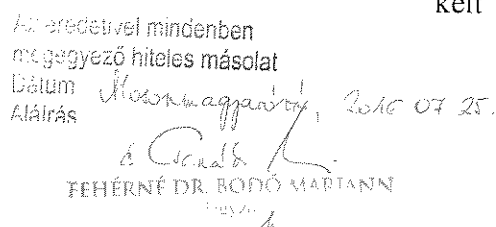 kelt
Az eredetivel mindenben
megegyező hiteles másolat
Dátum Mosonmagyaróvár, 2016 07 25.
Aláírás
FEHÉRNÉ DR. BODÓ MARIANN